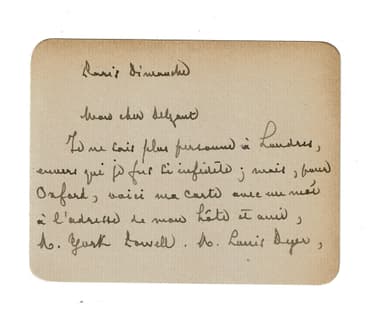 Paris Dimanche
Mon cher Delzant
Je ne sais plus personne à Londres,
envers qui je fus si infidèle ; mais, pour
Oxford, voici ma carte avec un mot
à l'adresse de mon hôte et ami,
M. York Powell. M. Louis Dyer,